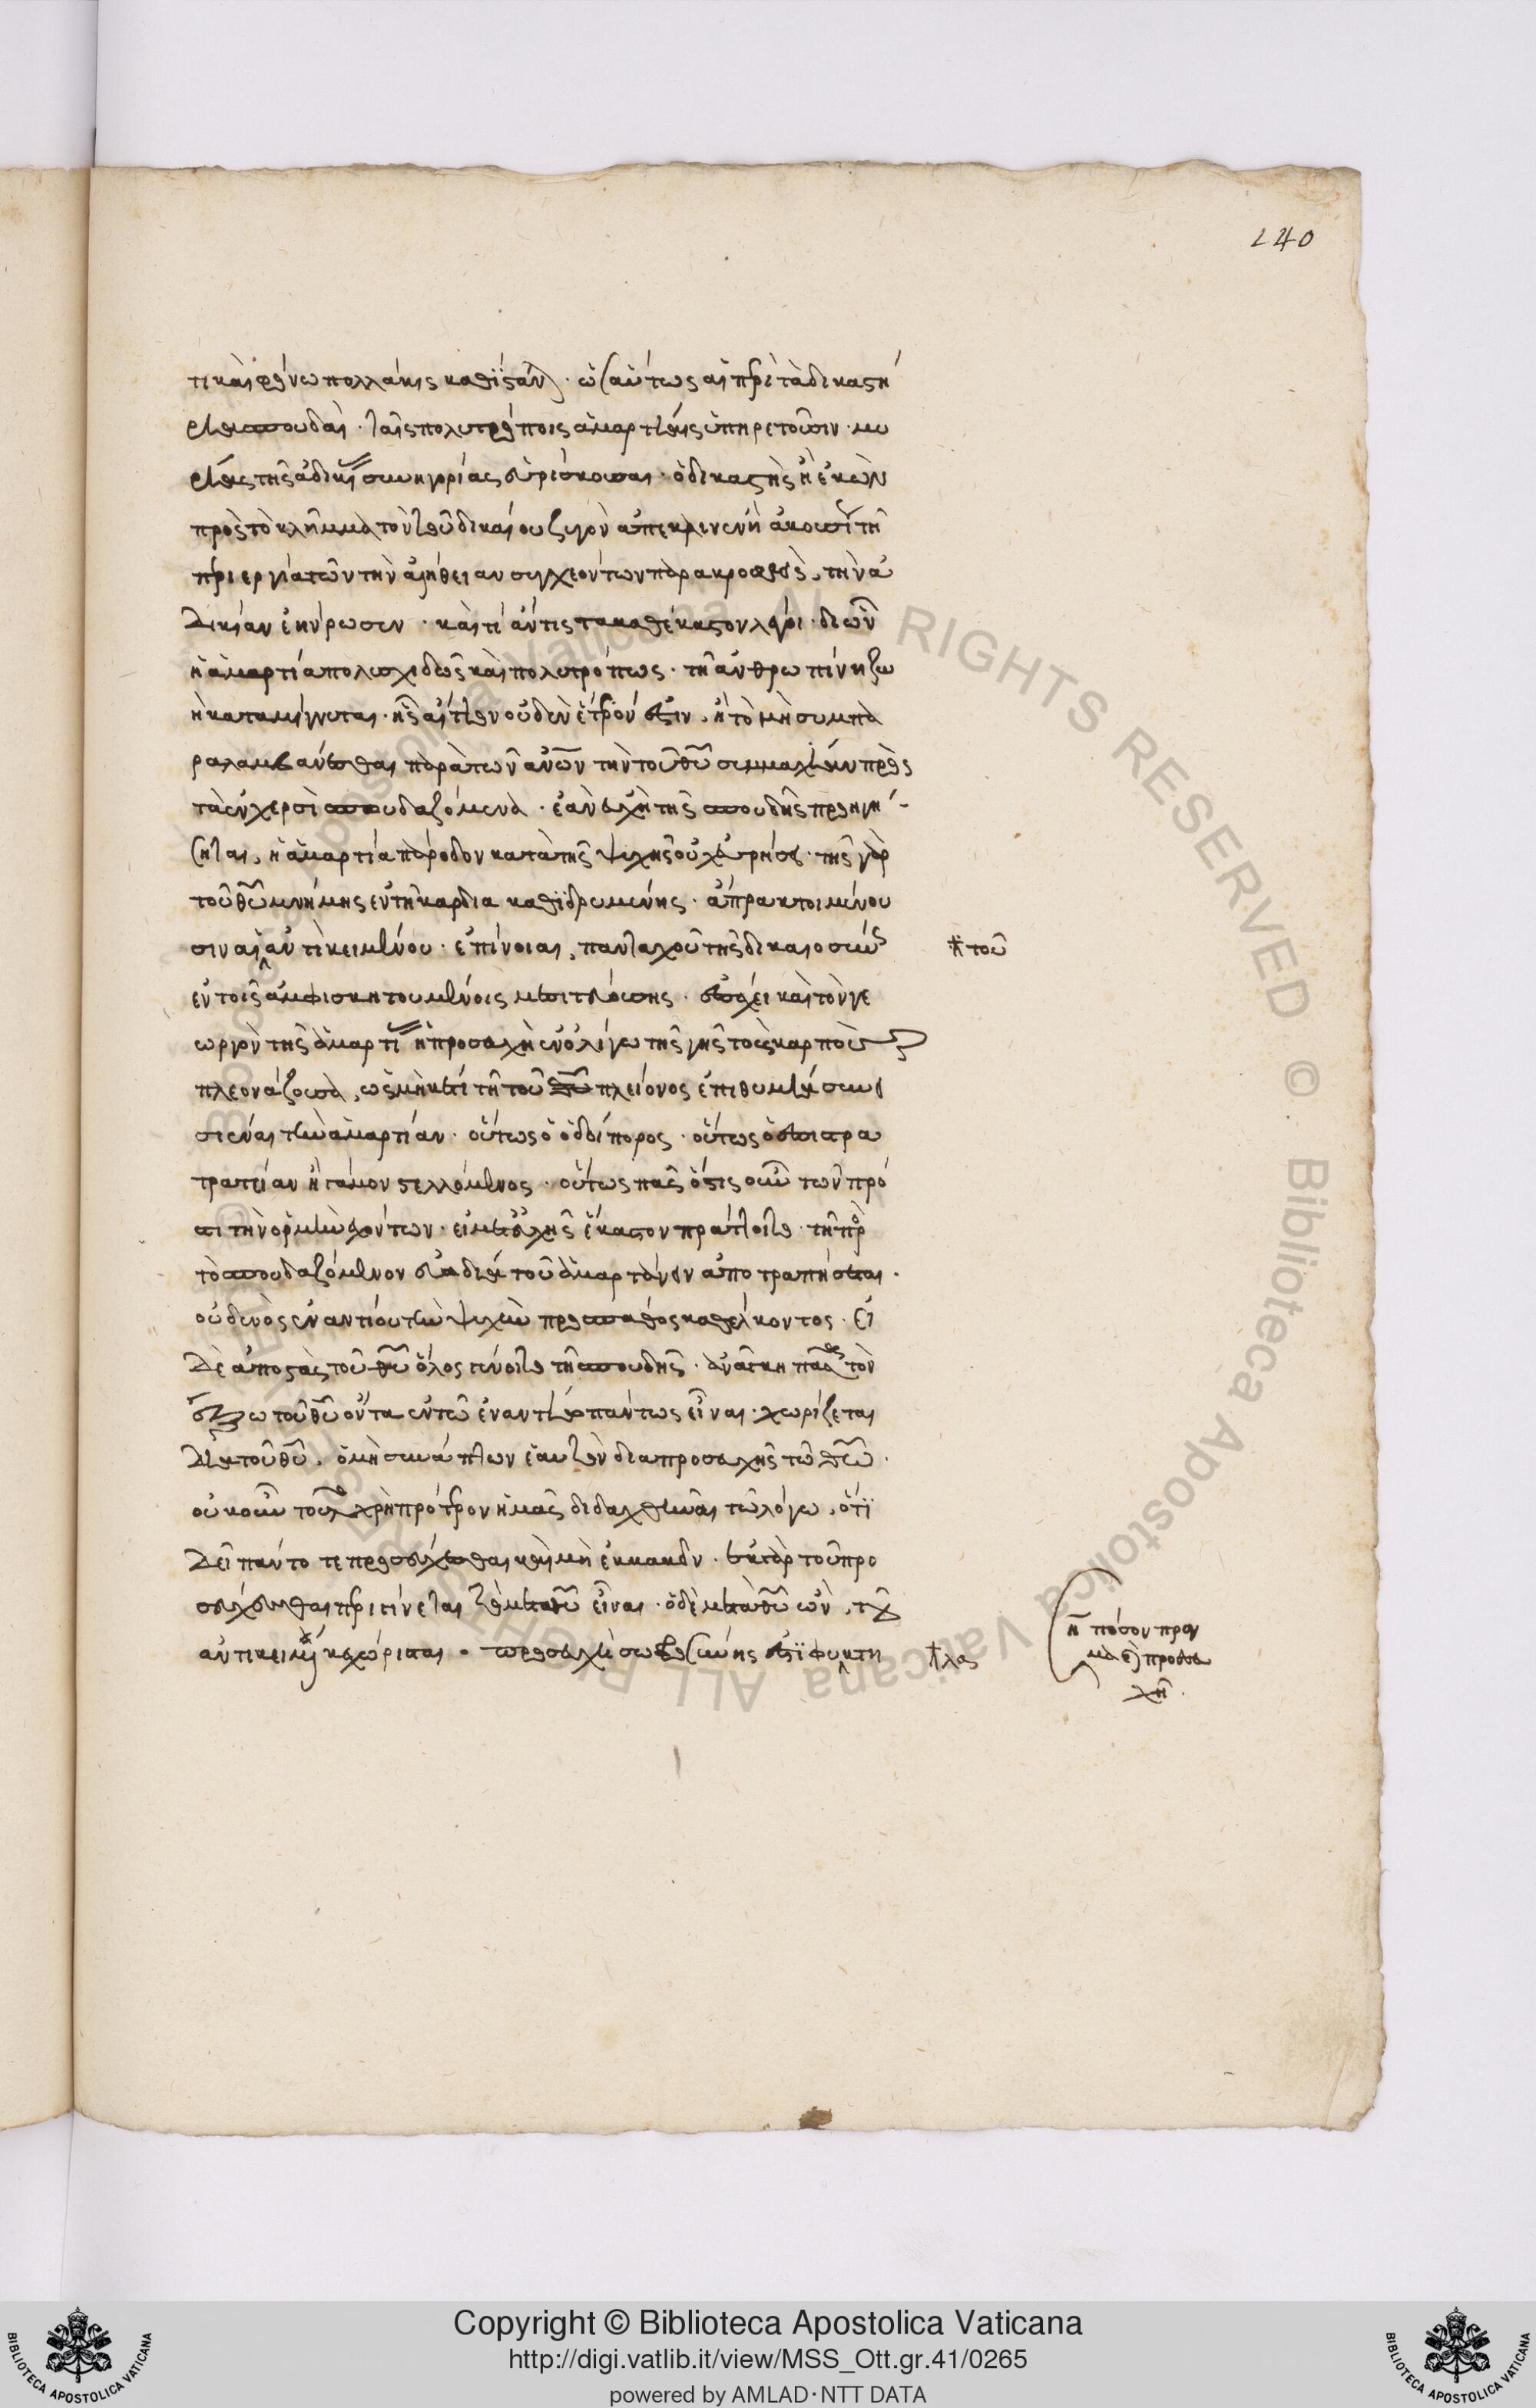 240
τι καὶ φόνω πολλάκις καθίσταντ. ὡσαύτως αἱ περὶ τὰ δικαστή
ρια σπουδαὶ. ταῖς πολυτρόποις ἁμαρτίαις ὑπηρετοῦσιν. μυ
τῆς ἀδικίας συνηγορίας εὑρίσκουσαι. ὁ δικαστὴς ἢ ἑκὼν
πρὸς τὸ κλῆμμα τὸν τοῦ δικαίου ζυγὸν ἀπέκλινεν ἢ ἄκουσι τῆ
περιεργία τῶν τὴν ἀλήθειαν συγχεόντων παρακρουσθεὶς, τὴν ἀ
δικίαν ἐκύρωσεν. καὶ τί ἄν τις τὰ καθέκαστον λέγοι. δι ὧν
ἡ ἁμαρτία πολυσχιδῶς καὶ πολυτρόπως. τῆ ἀνθρωπίνη ζω
ῆ καταμίγνυται. ἧς αἴτιον οὐδὲν ἕτερόν ἐστιν, ἢ τὸ μὴ συμπα
ραλαμβάνεσθαι παρὰ τῶν ἀνων τὴν τοῦ θυ συμμαχίαν πρὸς
τὰ ἐν χερσὶ σπουδαζόμενα. ἐὰν εὐχὴ τῆς σπουδῆς προηγή
σηται, ἡ ἁμαρτία πάροδον κατὰ τῆς ψυχῆς οὐχ εὑρήσει. τῆς γὰρ
τοῦ θυ μνήμης ἐν τῆ καρδία καθιδρυμένης. ἄπρακτοι μένου
σιν αἱ ἀντικειμένου. ἐπίνοιαι, πανταχοῦ τῆς δικαιοσύνης
⁜ τοῦ
ἐν τοῖς ἀμφισβητουμένοις μεσιτευούσης. ἐπέχει καὶ τὸν γε
ωργὸν τῆς ἁμαρτίας ἡ προσευχὴ ἐν ὀλίγω τῆς γῆς τοὺς καρποὺς
πλεονάζουσα, ὡς μηκέτι τῆ τοῦ πλείονος ἐπιθυμία συνει
σιέναι τὴν ἁμαρτίαν. οὕτως ὁ ὁδοίπορος. οὕτως ὁ ἐπὶ στρα
τιαν ἢ γάμον στελλόμενος. οὕτως πᾶς ὅστις οὖν τῶν πρό
τι τὴν ὁρμὴν ἐχόντων. εἰ μετ εὐχῆς ἕκαστον πράττοιτο. τῆ περὶ
τὸ σπουδαζόμενον εὐοδία τοῦ ἁμαρτάνειν ἀποτραπήσεται.
οὐδενὸς ἐναντίου τὴν ψυχὴν πρὸς πάθος καθέλκοντος. εἰ
δὲ ἀποστὰς τοῦ θυ ὅλος γένοιτο τῆς σπουδῆς. ἀνάγκη πᾶσα τὸν
ἔξω τοῦ θυ ὄντα ἐν τῶ ἐναντίω πάντως εἶναι. χωρίζεται
δὲ τοῦ θυ. ὁ μὴ συνάπτων ἑαυτὸν δια προσευχῆς τῶ θεῶ.
οὐκοῦν τοῦτο χρὴ πρότερον ἡμᾶς διδαχθῆναι τῶ λόγω, ὅτι
δεῖ πάντοτε προσεύχεσθαι καὶ μὴ ἐκκακεῖν. ἐκ γὰρ τοῦ προ
σεύχεσθαι περιγίνεται τὸ μετὰ θυ εἶναι. ὁ δὲ μετὰ θυ ὢν, τοῦ
ἀντικειμένου κεχώρισται. προσευχὴ σωφροσύνης ἐστὶ φυκτη
⁒ λα
ἢ πόσον πρα
μα ἐστὶ προσευ
χή.
Copyright © Biblioteca Apostolica Vaticana
http://digi.vatlib.it/view/MSS_Ott.gr.41/0265
powered by AMLAD·NTT DATA
BIBLIOTECA APOSTOLICA VATICANA
BIBLIOTECA APOSTOLICA VATICANA
© Biblioteca Apostolica Vaticana ALL RIGHTS RESERVED © Biblioteca Apostolica Vaticana ALL RIGHTS RESERVED